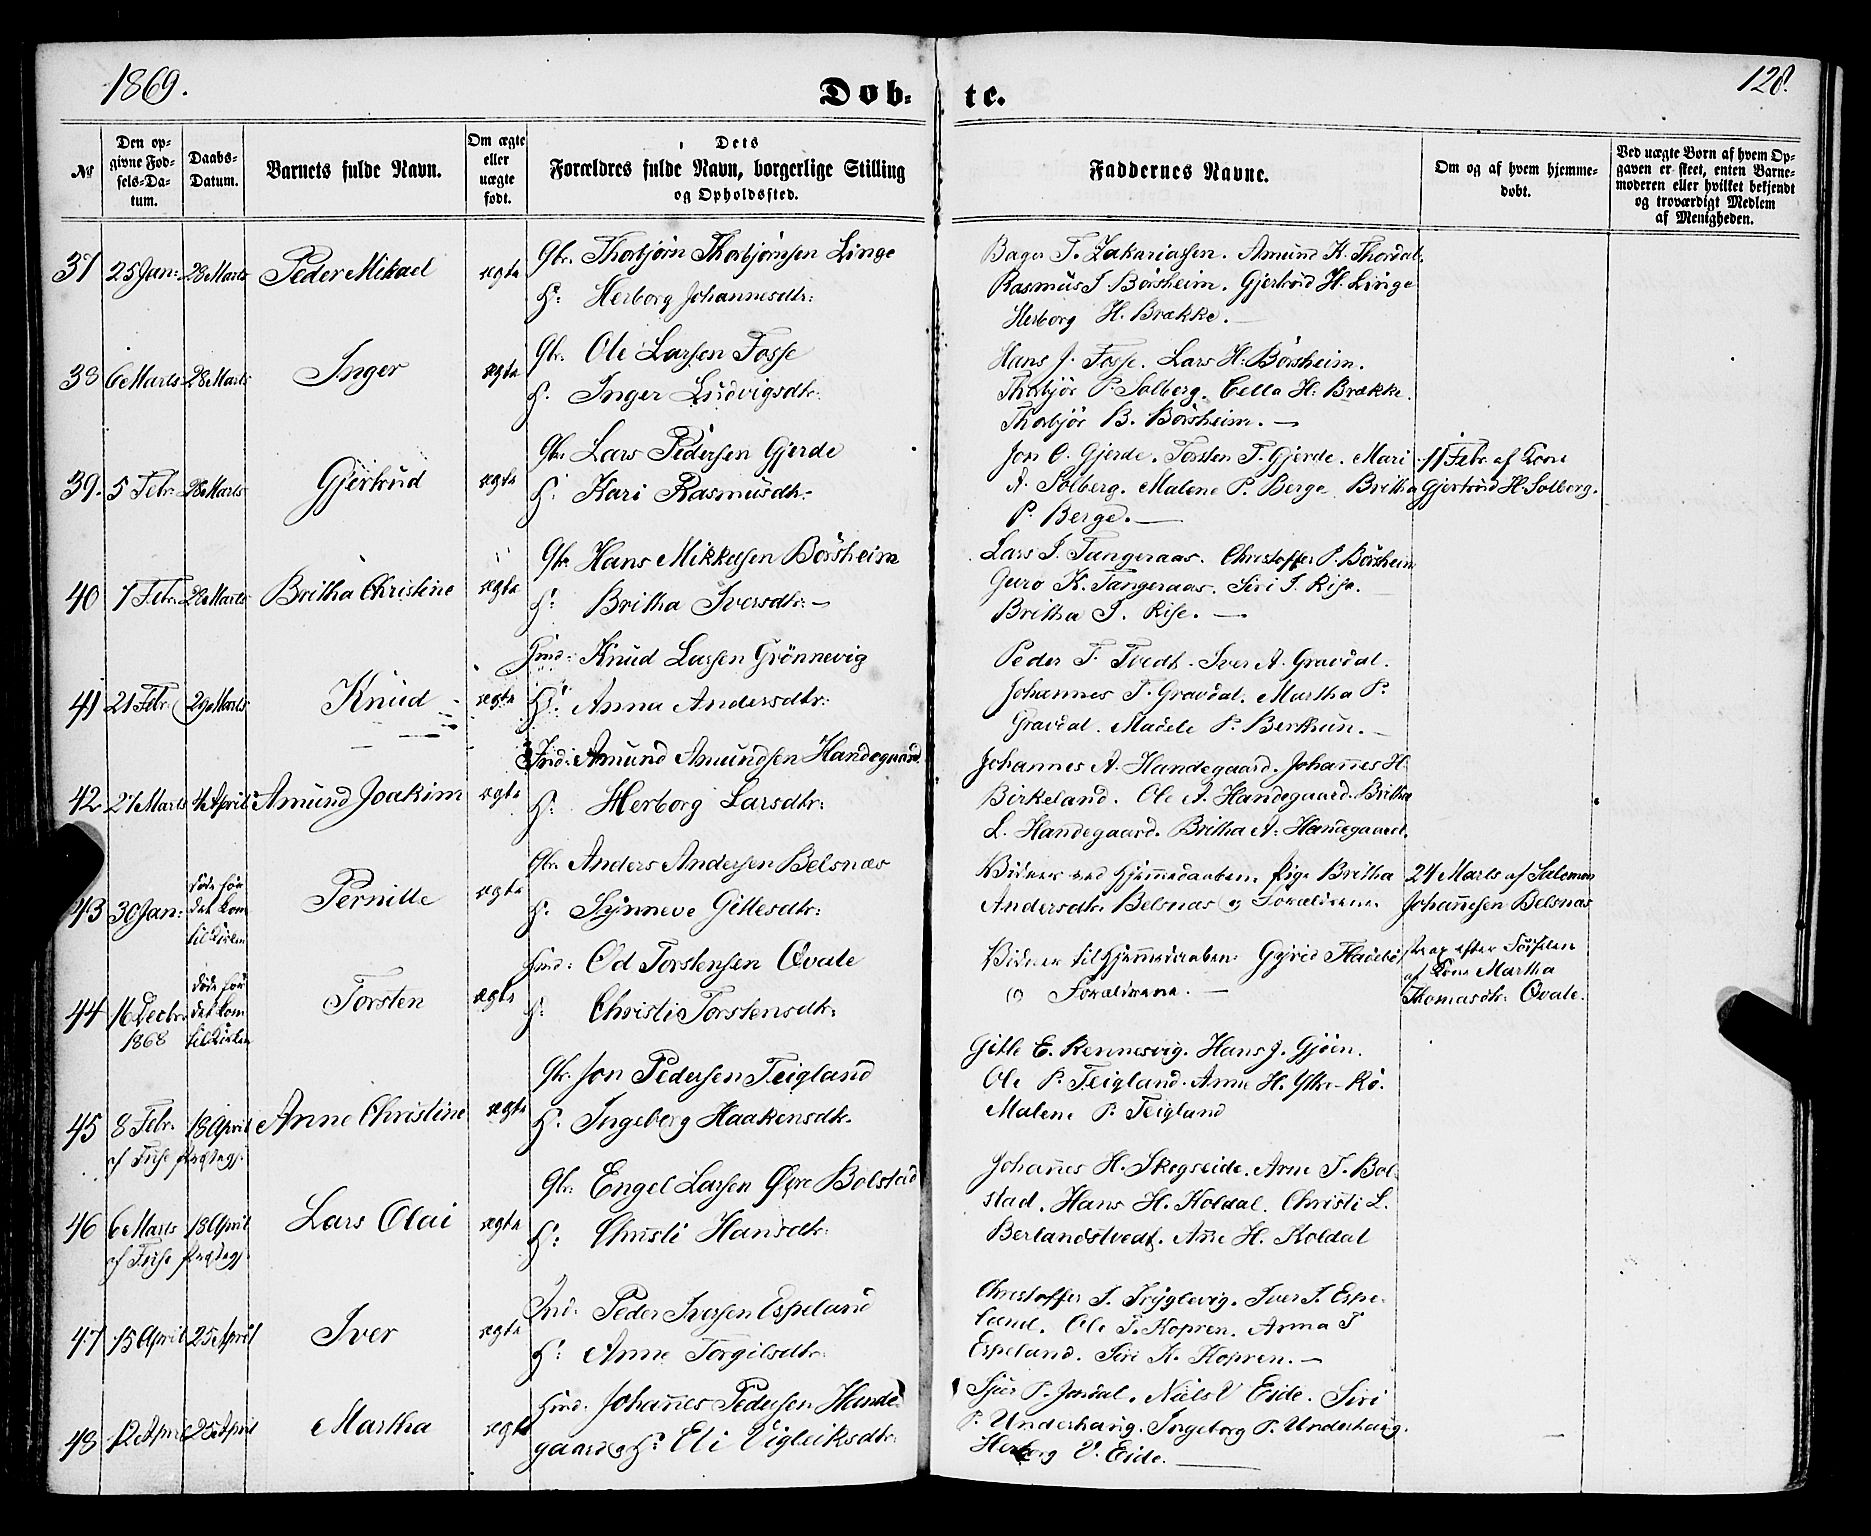 1869.
Døb-
te.
128.
№
Den op-
givne Fød-
sels-Da-
tum.
Daabs-
Datum.
Barnets fulde Navn.
Om ægte
eller
uægte
født.
Dets
Forældres fulde Navn, borgerlige Stilling
og Opholdssted.
Faddernes Navne.
Om og af hvem hjemme-
døbt.
Ved uægte Børn af hvem Op-
gaven er skeet, enten Barne-
moderen eller hvilket bekjendt
og troværdigt Medlem
af Menigheden.
37 25 Jan: 28 Marts Peder Mikael ægte
Gbr. Thorbjørn Thorbjørnsen Linge
H: Herborg Johannesdtr:
T. Zakariassen. Amund K. Thordal.
Rasmus J. Börsheim. Gjertrud H. Linge
Herborg H. Brække. —
38 6 Marts 28 Marts Inger ægte
Gbr. Ole Larsen Fosse
H. Inger Ludvigsdtr.
Hans J. Fosse. Lars H. Börsheim.
Thorbjör P. Solberg. Cella H. Brække.
Thorbjör B. Börsheim. —
39. 5 Febr. 28 Marts Gjertrud ægte
Gbr. Lars Pedersen Gjerde
H. Kari Rasmusdtr.
Jon O. Gjerde. Torsten T. Gjerde. Mari
A. Solberg. Malene P. Berge. Britha
P. Berge. —
11 Febr. af Kone
Gjertrud H. Solberg.
40 7 Febr. 28 Marts Britha Christine ægte
Gbr. Hans Mikkelsen Börsheim
H: Britha Iversdtr. —
Lars I. Tangeraas. Christoffer P. Börsheim
Guro K. Tangeraas. Siri I. Rise.
Britha I. Rise. —
41 21 Febr. 29 Marts Knud ægte
Hmd: Knud Larsen Grönnevig
H: Anna Andersdtr:
Peder T. Tvedt. Iver A. Gravdal.
Johannes T. Gravdal. Martha P.
Gravdal. Madele P. Berthun. —
42 27 Marts 4 April Amund Joakim ægte
Ind: Amund Amundsen Handegaard.
H. Herborg Larsdtr:
Johannes A. Handegaard. Johannes H.
Birkeland. Ole A. Handegaard. Britha
L. Handegaard. Britha A. Handegaard.
43 30 Jan: døde för det kom til Kirken Pernille ægte
Gbr. Anders Andersen Belsnæs
H. Synneve Gitlesdtr:
Vidner ved Hjemmedaaben. Pige Britha
Andersdtr. Belsnæs og Forældrene
24 Marts af Salemon
Johannesen Belsnæs
44 16 Decbr. 1868 døde för det kom til Kirken Torsten ægte
Hmd: Od Torstensen Ovale
H: Christi Torstensdtr:
Vidner til Hjemmedaaben:
og Forældrene. —
strax efter Födselen
af Kone Martha
Thomasdtr. Ovale.
45 8 Febr. 18 April Anne Christine ægte
af Fuse Præstegj.
Gbr. Jon Pedersen Teigland
H. Ingeborg Haakensdtr.
Gitle E. Rennesvig. Hans J. Gjöen.
Ole P. Teigland. Anne H. Ytre-Rö.
Malene P. Teigland
46 6 Marts 18 April Lars Olai ægte
af Fuse Præstegj.
Gbr: Engel Larsen Övre Bolstad
H: Christi Hansdtr.
Johannes H. Skogseide. Arne T. Bol-
stad. Hans H. Koldal. Christi L.
Berlandstvedt. Anne H. Koldal
47 15 April 25 April Iver ægte
Ind: Peder Iversen Espeland
H: Anne Torgilsdtr.
Christoffer I. Tryglevig. Iver I. Espe-
land. Ole T. Kopren. Anna I
Espeland. Siri K. Kopren. —
48 12 April 25 April Martha ægte
Hmd. Johannes Pedersen Hande-
gaard og H: Eli Vigleiksdtr.
Sjur P. Jordal. Niels V Eide. Siri
P. Underhaug. Ingeborg P. Underhaug.
Herborg V. Eide. —